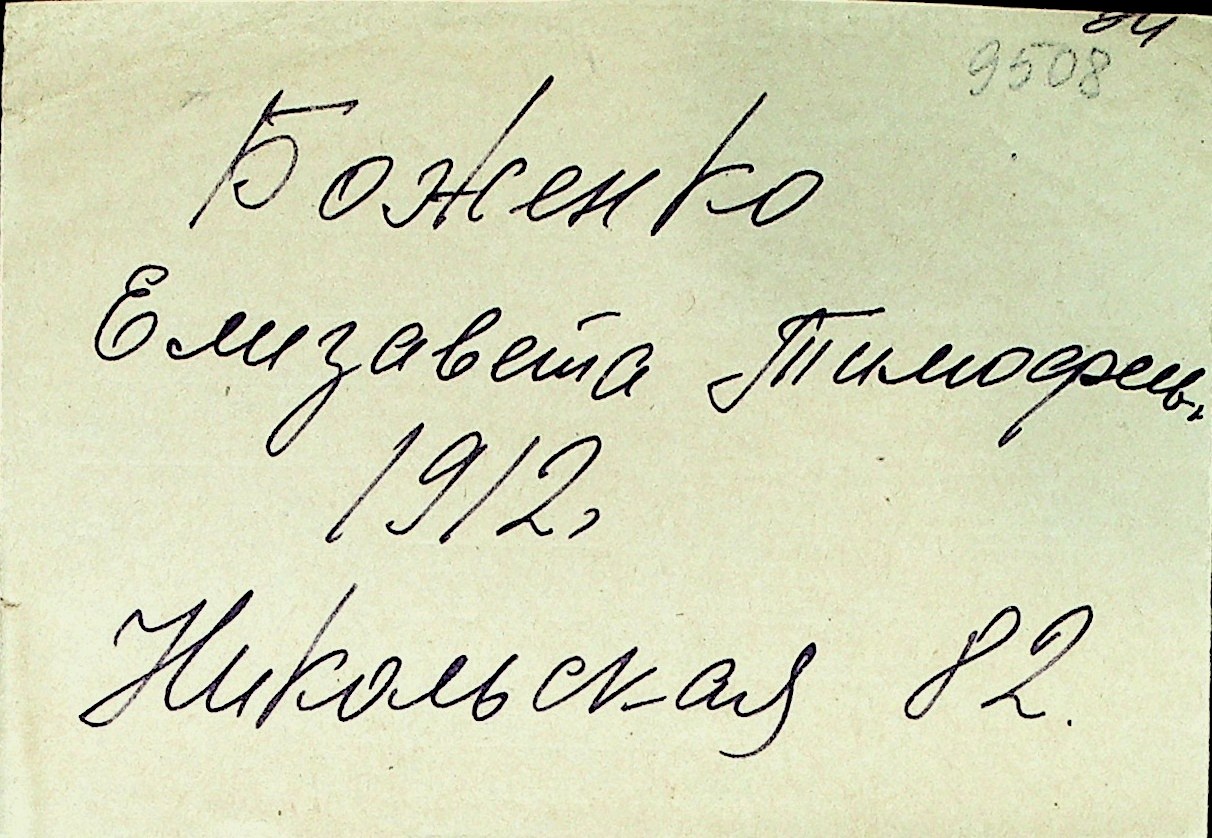 9508
Боженко
Елизавета Тимофеев.
1912,
Никольская 82.